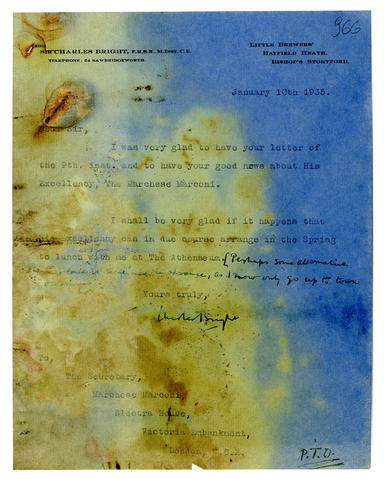 966
SIR CHARLES BRIGHT, F.R.S.E., M.INST.C.E.
TELEPHONE: 24 SAWBRIDGEWORTH.
LITTLE BREWERS'
HATFIELD HEATH,
BISHOP'S STORTFORD.
January 10th 1935.
Dear Sir,
I was very glad to have your letter of
the 9th. inst. and to have your good news about His
Excellency, The Marchese Marconi.
I shall be very glad if it happens that
His Excellency can in due course arrange in the Spring
to lunch with me at The Athenaeum. (Perhaps some alternative
in advance, as I now only go up to town
Yours truly,
Charles Bright
To,
The Secretary,
Marchese Marconi,
Electra House,
Victoria Embankment,
London, W.C.2.
P.T.O.